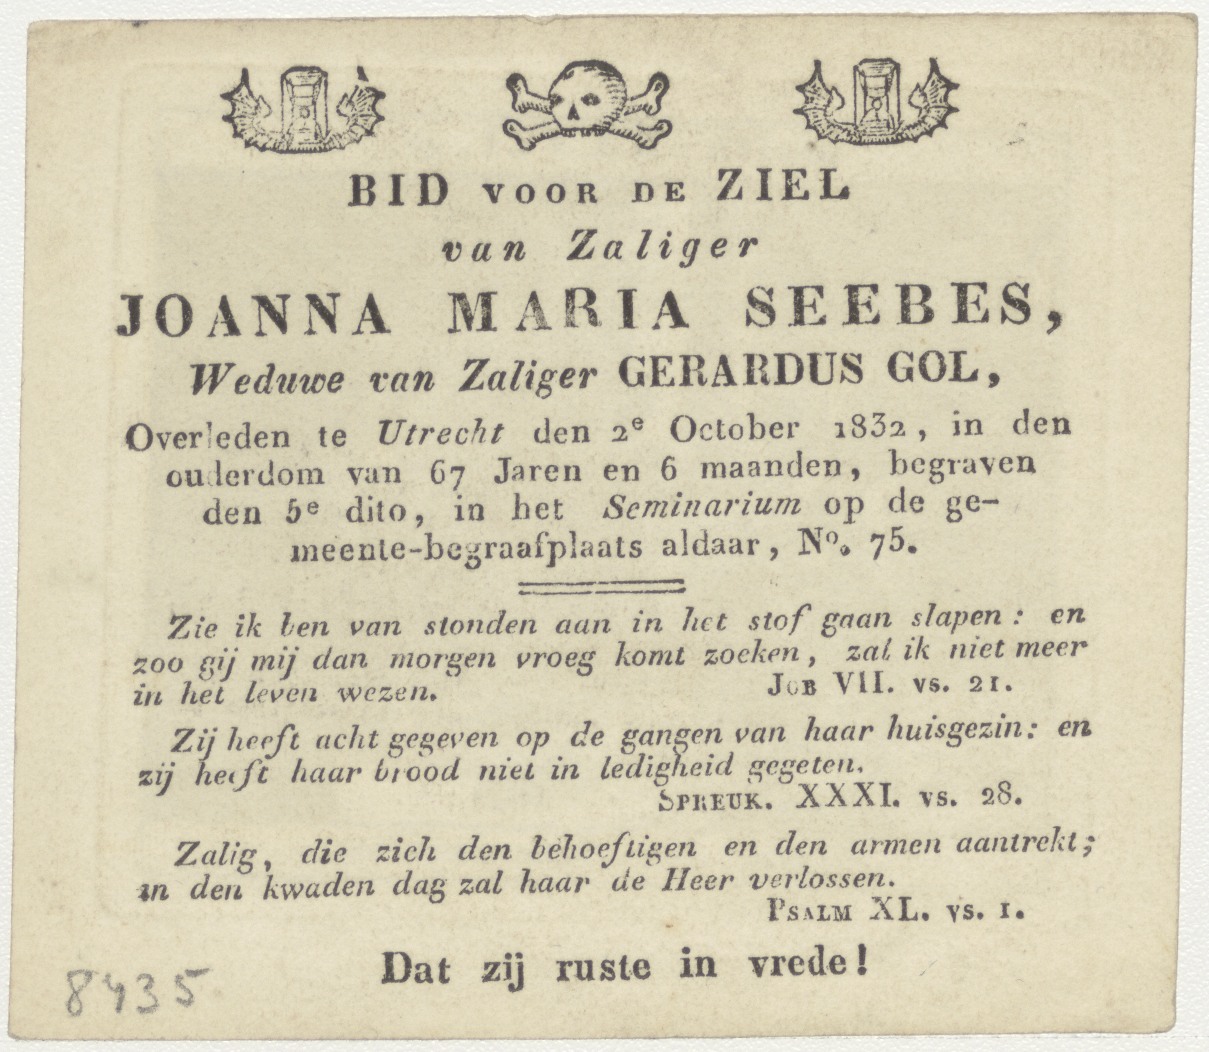 BID VOOR DE ZIEL
van Zaliger
JOANNA MARIA SEEBES,
Weduwe van Zaliger GERARDUS GOL,
Overleden te Utrecht den 2e October 1832, in den
ouderdom van 67 Jaren en 6 maanden, begraven
den 5e dito, in het Seminarium op de ge-
meente-begraafplaats aldaar, No. 75.
Zie ik ben van stonden aan in het stof gaan slapen: en
zoo gij mij dan morgen vroeg komt zoeken, zal ik niet meer
in het leven wezen. JOB VII. vs. 21.
Zij heeft acht gegeven op de gangen van haar huisgezin: en
zij heeft haar brood niet in ledigheid gegeten.
SPREUK. XXXI. vs. 28.
Zalig, die zich den behoeftigen en den armen aantrekt;
in den kwaden dag zal haar de Heer verlossen.
PSALM XL. vs. 1.
Dat zij ruste in vrede!
8435